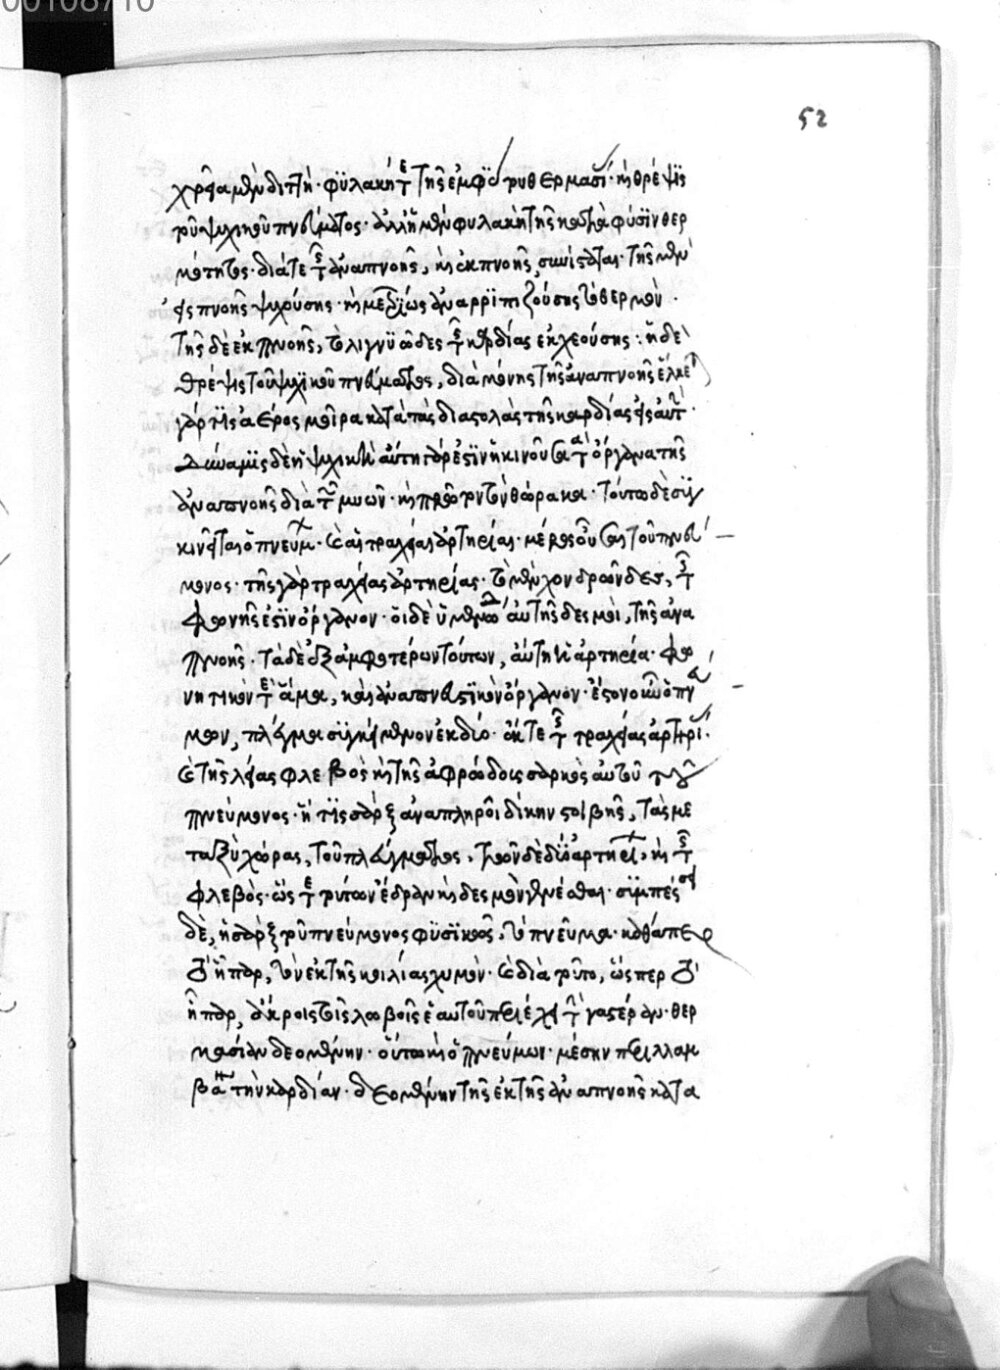 52
χρεία μὲν διττὴ· φυλακή τε τῆς ἐμφύτου θερμασί· καὶ θρέψις
τοῦ ψυχικοῦ πνεύματος· ἀλλ' ἡ μὲν φυλακὴ τῆς κατὰ φύσιν θερ
μότητος· διά τε τῆς ἀναπνοῆς, καὶ ἐκπνοῆς συνίσταται· τῆς μὲν
εἰσπνοῆς ψυχούσης· καὶ μετρίως ἀναρριπιζούσης τὸ θερμὸν·
τῆς δὲ ἐκπνοῆς, τὸ λιγνυῶδες τῆς καρδίας ἐκχεούσης· ἡ δὲ
θρέψις τοῦ ψυχικοῦ πνεύματος, διὰ μόνης τῆς ἀναπνοῆς ἕλκε
γάρ τις ἀέρος μοῖρα κατὰ τὰς διαστολὰς τῆς καρδίας εἰς αὐτ·
Δύναμις δὲ ἡ ψυχικὴ αὐτὴ γάρ ἐστιν ἡ κινοῦσα τὰ ὄργανα τῆς
ἀναπνοῆς διὰ τῶν μυῶν· καὶ πρῶτον τὸν θώρακα· τούτω δὲ
κινεῖται ὁ πνεύμ· καὶ αἱ τραχεῖαι ἀρτηρίαι· μέρος οὖσαι τοῦ πνεύ
μονος· τῆς γὰρ τραχείας ἀρτηρίας· τὸ μὲν χονδρῶδες, τῆς
φωνῆς ἐστὶν ὄργανον· οἱ δὲ ὑμενώδ αὐτῆς δεσμοὶ, τῆς ἀνα
πνοῆς· τὸ δὲ ἐξ ἀμφοτέρων τούτων, αὐτὴ ἡ ἀρτηρία· φω
νητικόν τε ἅμα, καὶ ἀναπνευστικὸν ὄργανον· ἔστιν οὖν ὁ πν
μων, πλέγμα συγκείμενον ἐκ διό· ἔκ τε τῆς τραχείας ἀρτηρί·
καὶ τῆς λείας φλεβὸς καὶ τῆς ἀφρώδους σαρκὸς αὐτοῦ τοῦ
πνεύμονος· ἥ τις σὰρξ ἀναπληροῖ δίκην στοιβῆς, τὰς με
ταξὺ χώρας, τοῦ πλέγματος, τῶν δύο ἀρτηρι, καὶ τῆς
φλεβὸς· ὥς τε τούτων ἕδραν καὶ δεσμὸν γενέσθαι· συμπέσσει
δὲ, ἡ σὰρξ τοῦ πνεύμονος φυσικῶς, τὸ πνεῦμα· καθάπερ
τὸ ἧπαρ, τὸν ἐκ τῆς κοιλίας χυμὸν· καὶ διὰ τοῦτο, ὥσπερ τὸ
ἧπαρ, ἄκροις τοῖς λοβοῖς ἑαυτοῦ περιέχει τὴν γαστέραν· θερ
μασίαν δεομένην· οὕτω καὶ ὁ πνεύμων· μέσην περιλαμ
βάνει τὴν καρδίαν· δεομένην τῆς ἐκ τῆς ἀναπνοῆς κατα